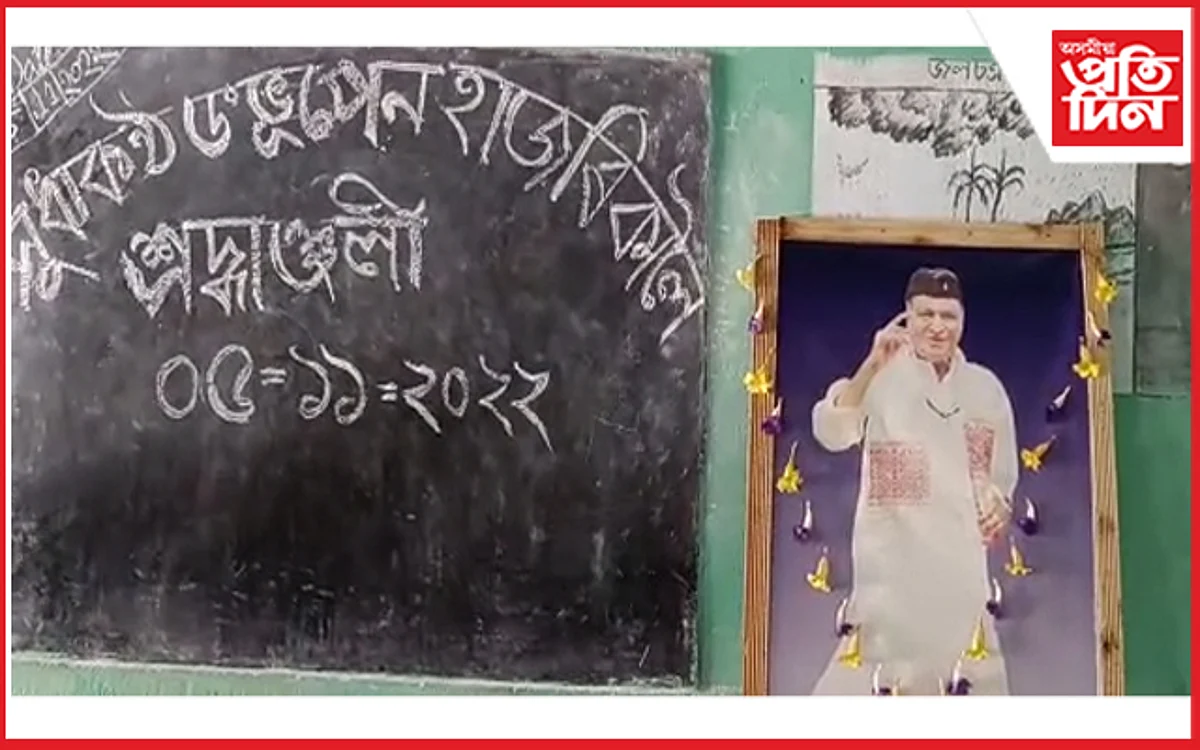 সুধাকন্ঠ ড° ভূপেন হাজৰিকালৈ
শ্ৰদ্ধাঞ্জলী
০৫=১১=২০২২
অসমীয়া
প্ৰতি
দিন